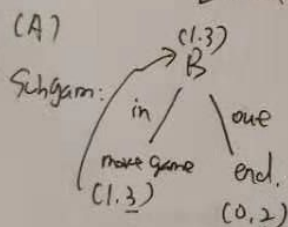 (A)
(1.3)
B
Subgam:
in out
more game end.
(1.3) (0,2)